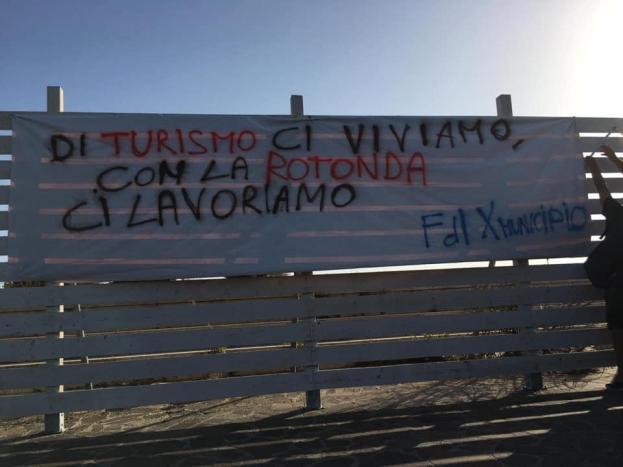 DI TURISMO CI VIVIAMO,
COM LA ROTONDA
CI LAVORIAMO
FdI X MUNICIPIO